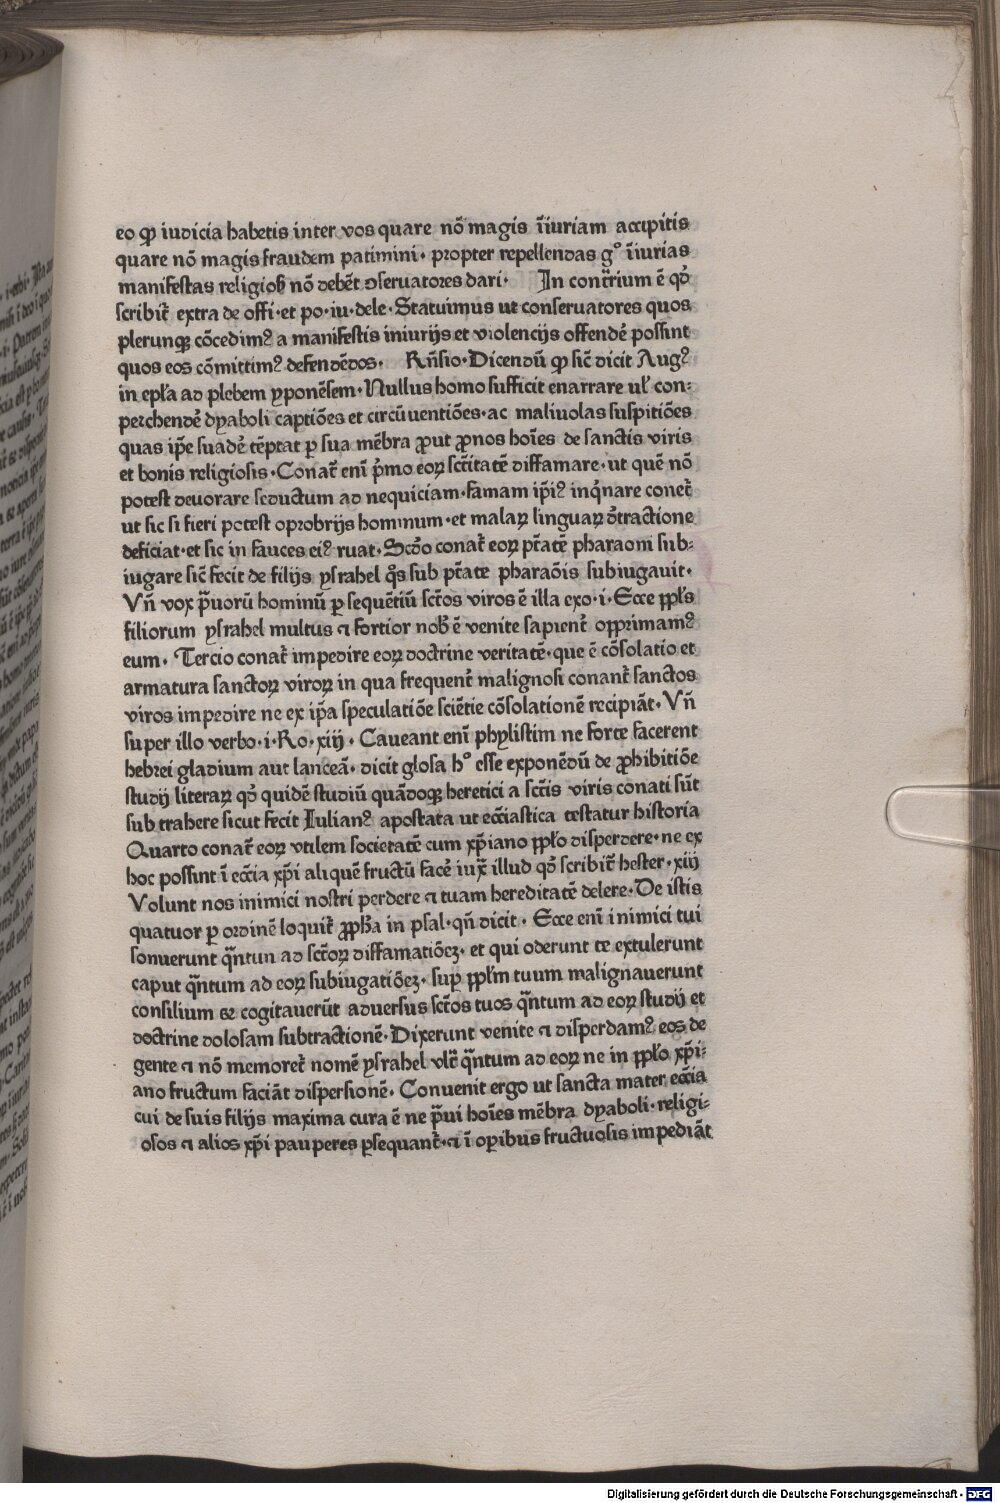 eo ꝙ iudicia habetis inter vos quare nō magis īiuriam accipitis
quare nō magis fraudem patimini · propter repellendas gº īiurias
manifestas religioſ nō debēt ↄseruatores dari · In contr̄ium ē qď
scribit̄ extra de offi · et po · iu · dele · Statuimus ut conseruatores quos
plerunqꝫ cōcedimꝰ a manifestis iniurijs et violencijs offendē possint
quos eos cōmittimꝰ defendēdos · Rn̄sio · Dicendū ꝙ sic̄ dicit Augꝰ
in epl̄a ad plebem yponēsem · Nullus homo sufficit enarrare ul̄ con⹀
perchendē dyaboli captiōes et circūuentiōes · ac maliuolas suspitiōes
quas ip̄e suadē tēptat ꝑ sua mēbra ꝓut ꝓnos hoīes de sanctis viris
et bonis religiosis · Conat̄ eni p̄mo eoꝝ sc̄titatē diffamare · ut quē nō
potest deuorare seductum ad nequiciam · famam ip̄iꝰ inq̄nare conet̄
ut sic si fieri potest oprobrijs hominum · et malaꝝ linguaꝝ ďtractione
deficiat · et sic in fauces eiꝰ ruat · Scďo conat̄ eoꝝ pt̄atē pharaoni sub⹀
iugare sic̄ fecit de filijs ysrahel q̄s sub pt̄ate pharaōis subiugauit ·
Vn̄ vox p̄uorū hominū ꝑ sequētiū sc̄tos viros ē illa exo · i · Ecce ꝓpl̄s
filiorum ysrahel multus ⁊ fortior nob̄ ē venite sapient̄ opprimamꝰ
eum · Tercio conat̄ impedire eoꝝ doctrine veritatē · que ē cōsolatio et
armatura sanctoꝝ viroꝝ in qua frequent̄ malignosi conant̄ sanctos
viros impedire ne ex ip̄a speculatiōe sciētie cōsolationē recipiāt · Vn̄
super illo verbo · i · Ro · xiij · Caueant eni phylistim ne forte facerent
hebrei gladium aut lanceā · dicit glosa hº esse exponēdū de ꝓhibitiōe
studij literaꝝ qď quidē studiū quādoqꝫ heretici a sc̄tis viris conati sūt
sub trahere sicut fecit Iulianꝰ apostata ut ecc̄iastica testatur historia
Quarto conat̄ eoꝝ vtilem societatē cum xp̄iano ꝓpl̄o disperdere · ne ex
hoc possint ī ecc̄ia xp̄i aliquē fructū facē iux̄ illud qď scribit̄ hester · xiij
Volunt nos inimici nostri perdere ⁊ tuam hereditatē delere · De istis
quatuor ꝑ ordinē loquit̄ ꝓph̄a in psal · qn̄ dicit · Ecce eni inimici tui
sonuerunt q̄ntun ad sc̄toꝝ diffamatiōeꝫ · et qui oderunt te extulerunt
caput q̄ntum ad eoꝝ subiugatiōeꝫ · suꝑ ꝓpl̄m tuum malignauerunt
consilium & cogitauerūt aduersus sc̄tos tuos q̄ntum ad eoꝝ studij et
doctrine dolosam subtractionē · Dixerunt venite ⁊ disperdamꝰ eos de
gente ⁊ nō memoret̄ nomē ysrahel vlt̄ q̄ntum ad eoꝝ ne in ꝓpl̄o xp̄i⹀
ano fructum faciāt dispersionē · Conuenit ergo ut sancta mater ecc̄ia
cui de suis filijs maxima cura ē ne p̄ui hoīes mēbra dyaboli · religi⹀
osos ⁊ alios xp̄i pauperes ꝑsequant̄ · ⁊ ī oꝑibus fructuosis impediāt
Digitalisierung gefördert durch die Deutsche Forschungsgemeinschaft - DFG